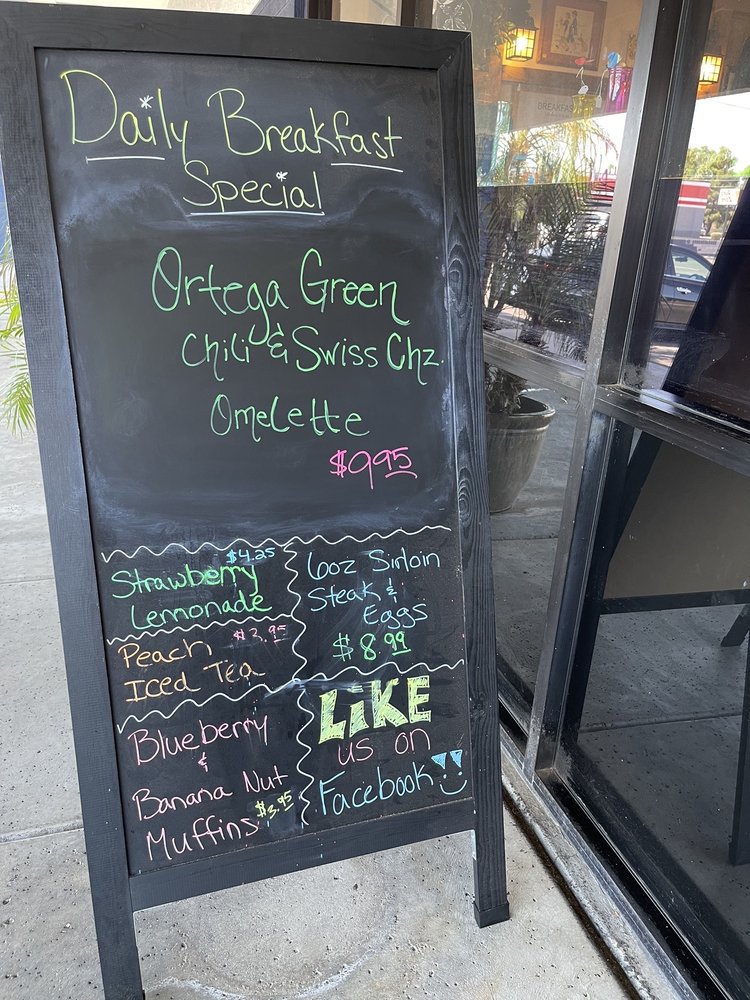 Daily Breakfast
Special
Ortega Green
Chili & Swiss Chz.
Omelette
$9.95
$4.25
Strawberry
Lemonade
$3.95
Peach
Iced Tea
Blueberry
&
Banana Nut
$3.95
Muffins
6oz Sirloin
Steak &
Eggs
$8.99
LiKE
us on
Facebook!!
BREAKFAST